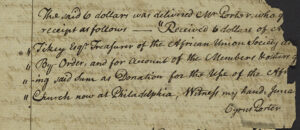 The said 6 dollars was delivered Mr Porter who g
receipt as follows — Received 6 dollars of
Esqr Treasurer of the African Union Society
" By Order, and for account of the Members
" ing said Sum as Donation for the Use of the Afri
" Church now at Philadelphia, Witness my hand,
Cyrus Porter